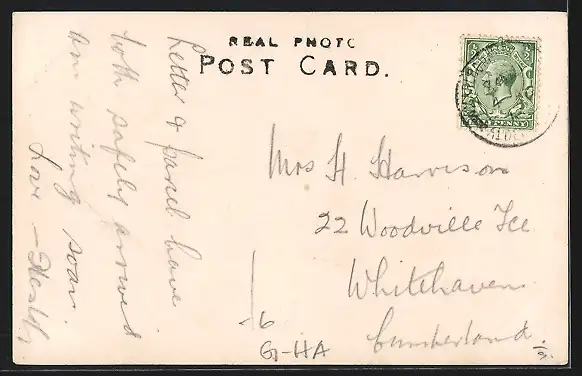 REAL PHOTO
POST CARD.
Letter & parcel have
both safely arrived
am writing soon
Love –
Mrs H. Harrison
22 Woodville Tce
Whitehaven
Cumberland.
G-HA